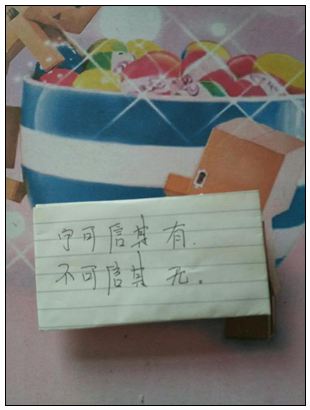 宁可信其有.
不可信其无。